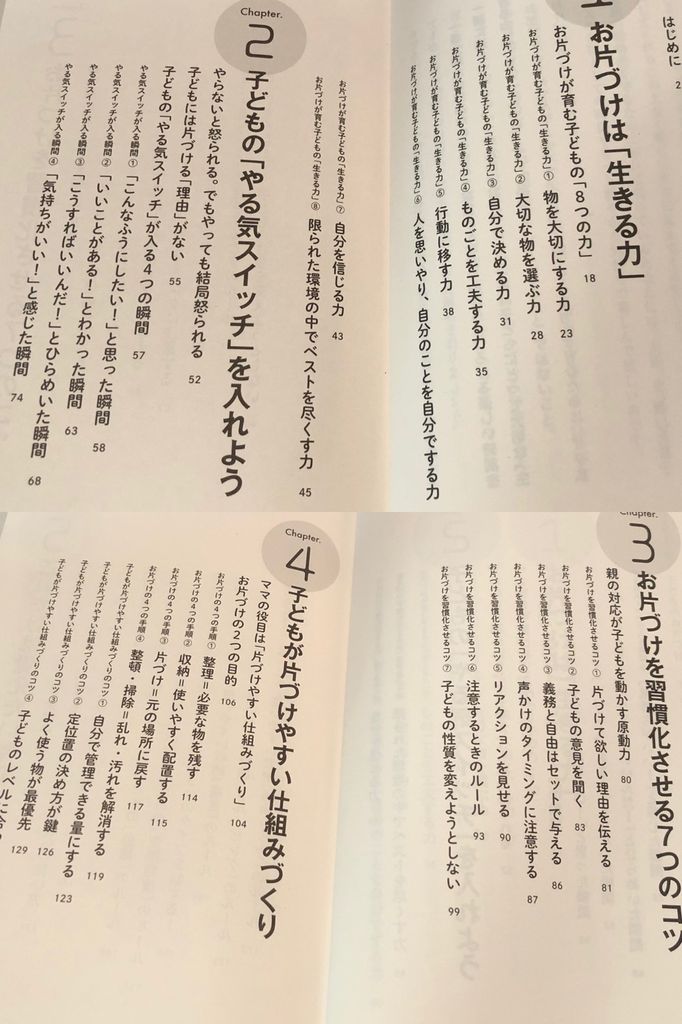 はじめに 2
1
お片づけは「生きる力」
お片づけが育む子どもの「8つの力」 18
お片づけが育む子どもの「生きる力」① 物を大切にする力 23
お片づけが育む子どもの「生きる力」② 大切な物を選ぶ力 28
お片づけが育む子どもの「生きる力」③ 自分で決める力 31
お片づけが育む子どもの「生きる力」④ ものごとを工夫する力 35
お片づけが育む子どもの「生きる力」⑤ 行動に移す力 38
お片づけが育む子どもの「生きる力」⑥ 人を思いやり、自分のことを自分でする力
お片づけが育む子どもの「生きる力」⑦ 自分を信じる力 43
お片づけが育む子どもの「生きる力」⑧ 限られた環境の中でベストを尽くす力 45
Chapter.
2
子どもの「やる気スイッチ」を入れよう
やらないと怒られる。でもやっても結局怒られる 52
子どもには片づける「理由」がない 55
子どもの「やる気スイッチ」が入る4つの瞬間 57
やる気スイッチが入る瞬間① 「こんなふうにしたい!」と思った瞬間 58
やる気スイッチが入る瞬間② 「いいことがある!」とわかった瞬間 63
やる気スイッチが入る瞬間③ 「こうすればいいんだ!」とひらめいた瞬間 68
やる気スイッチが入る瞬間④ 「気持ちがいい!」と感じた瞬間 74
Chapter.
3
お片づけを習慣化させる7つのコツ
親の対応が子どもを動かす原動力 80
お片づけを習慣化させるコツ① 片づけて欲しい理由を伝える 81
お片づけを習慣化させるコツ② 子どもの意見を聞く 83
お片づけを習慣化させるコツ③ 義務と自由はセットで与える 86
お片づけを習慣化させるコツ④ 声かけのタイミングに注意する 87
お片づけを習慣化させるコツ⑤ リアクションを見せる 90
お片づけを習慣化させるコツ⑥ 注意するときのルール 93
お片づけを習慣化させるコツ⑦ 子どもの性質を変えようとしない 99
Chapter.
4
子どもが片づけやすい仕組みづくり
ママの役目は「片づけやすい仕組みづくり」 104
お片づけの2つの目的 106
お片づけの4つの手順① 整理=必要な物を残す 114
お片づけの4つの手順② 収納=使いやすく配置する 115
お片づけの4つの手順③ 片づけ=元の場所に戻す 117
お片づけの4つの手順④ 整頓・掃除=乱れ・汚れを解消する 119
子どもが片づけやすい仕組みづくりのコツ① 自分で管理できる量にする 123
子どもが片づけやすい仕組みづくりのコツ② 定位置の決め方が鍵 126
子どもが片づけやすい仕組みづくりのコツ③ よく使う物が最優先 129
子どもが片づけやすい仕組みづくりのコツ④ 子どものレベルに